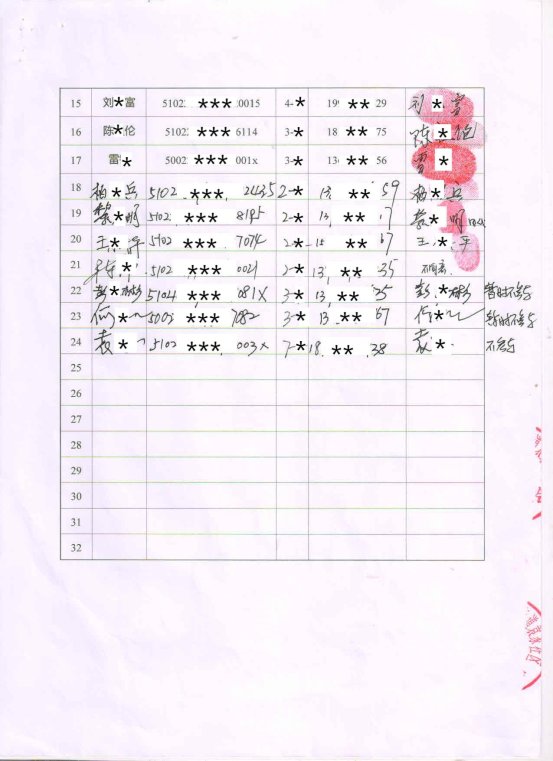 15 刘*富 5102 *** 0015 4-* 19 ** 29 刘*富
16 陈*伦 5102 *** 6114 3-* 18 ** 75 陈*伦
17 雷* 5002 *** 001x 3-* 13 ** 56 雷*
18 柏*兵 5102 *** 2435 2-* 13 ** 59 柏*兵
19 黎*明 5102 *** 8185 2-* 13 ** 17 黎*明
20 王*萍 5102 *** 7074 2-* 15 ** 67 王*平
21 * 5102 *** 0021 2-* 13 ** 35 不同意
22 彭*彬 5104 *** 081X 3-* 13 ** 35 彭*彬 暂时不参与
23 何* 5003 *** 7082 3-* 13 ** 67 何* 暂时不参与
24 袁* 5102 *** 003x 7-* 18 ** 38 袁* 不参与
25
26
27
28
29
30
31
32